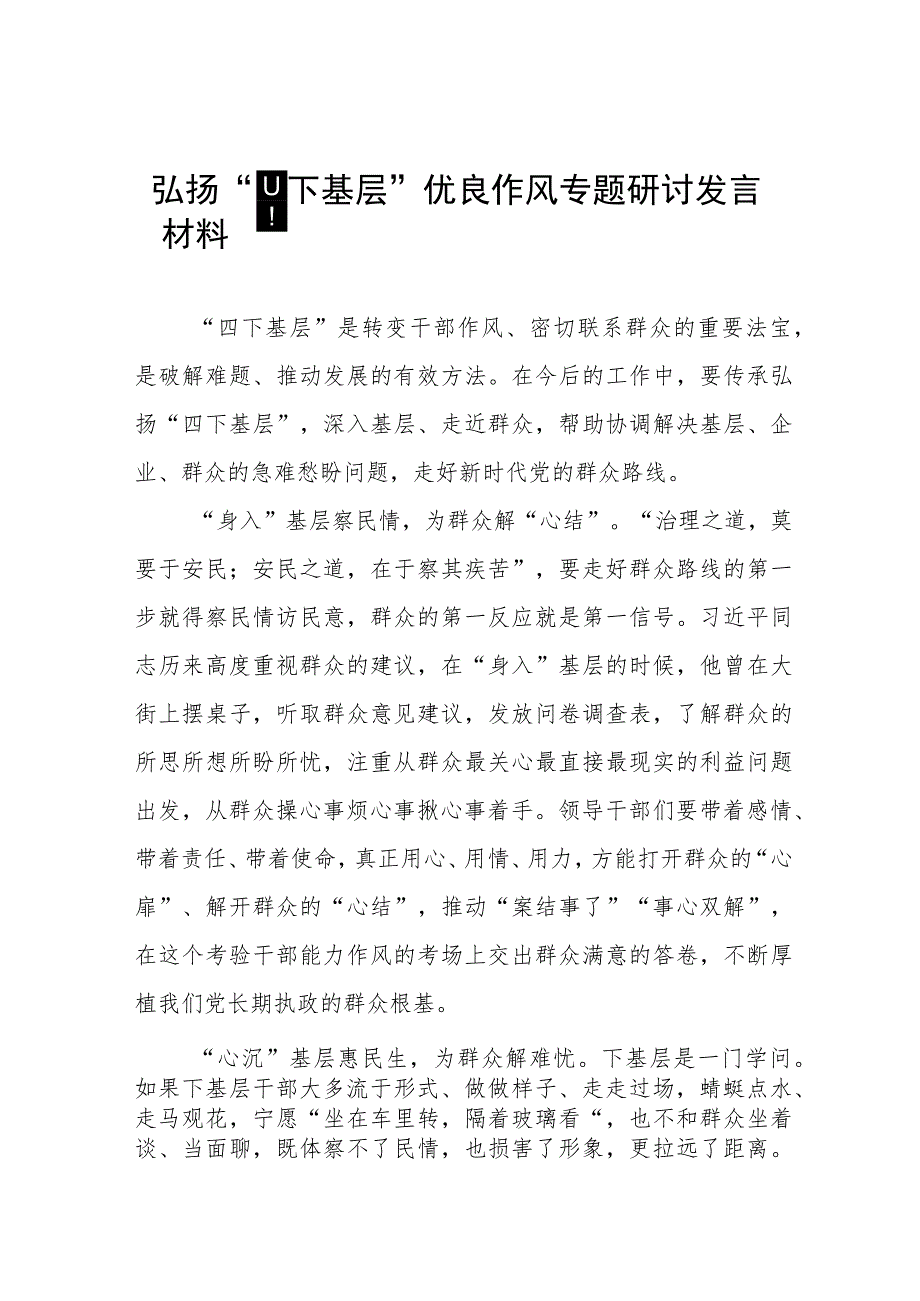 弘扬“U!下基层”优良作风专题研讨发言
材料
“四下基层”是转变干部作风、密切联系群众的重要法宝，
是破解难题、推动发展的有效方法。在今后的工作中，要传承弘
扬“四下基层”，深入基层、走近群众，帮助协调解决基层、企
业、群众的急难愁盼问题，走好新时代党的群众路线。
“身入”基层察民情，为群众解“心结”。“治理之道，莫
要于安民；安民之道，在于察其疾苦”，要走好群众路线的第一
步就得察民情访民意，群众的第一反应就是第一信号。习近平同
志历来高度重视群众的建议，在“身入”基层的时候，他曾在大
街上摆桌子，听取群众意见建议，发放问卷调查表，了解群众的
所思所想所盼所忧，注重从群众最关心最直接最现实的利益问题
出发，从群众操心事烦心事揪心事着手。领导干部们要带着感情、
带着责任、带着使命，真正用心、用情、用力，方能打开群众的“心
扉”、解开群众的“心结”，推动“案结事了”“事心双解”，
在这个考验干部能力作风的考场上交出群众满意的答卷，不断厚
植我们党长期执政的群众根基。
“心沉”基层惠民生，为群众解难忧。下基层是一门学问。
如果下基层干部大多流于形式、做做样子、走走过场，蜻蜓点水、
走马观花，宁愿“坐在车里转，隔着玻璃看“，也不和群众坐着
谈、当面聊，既体察不了民情，也损害了形象，更拉远了距离。